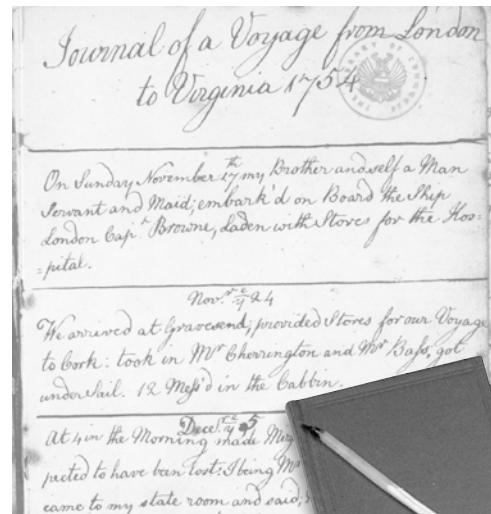 Journal of a Voyage from London
to Virginia 1754
LIBRARY OF CONGRESS
On Sunday November 17th my Brother and self a Man
Servant and Maid; embark'd on Board the Ship
London Capn. Browne, Laden with Stores for the Hos=
=pital.
Novr. ye 24
We arrived at Gravesend; provided Stores for our Voyage
to Cork: took in Mr Cherrington and Mr Bass, got
under Sail. 12 Mess'd in the Cabbin.
Decer. ye 5
At 4 in the Morning made
pected to have been lost: I being
came to my state room and said,